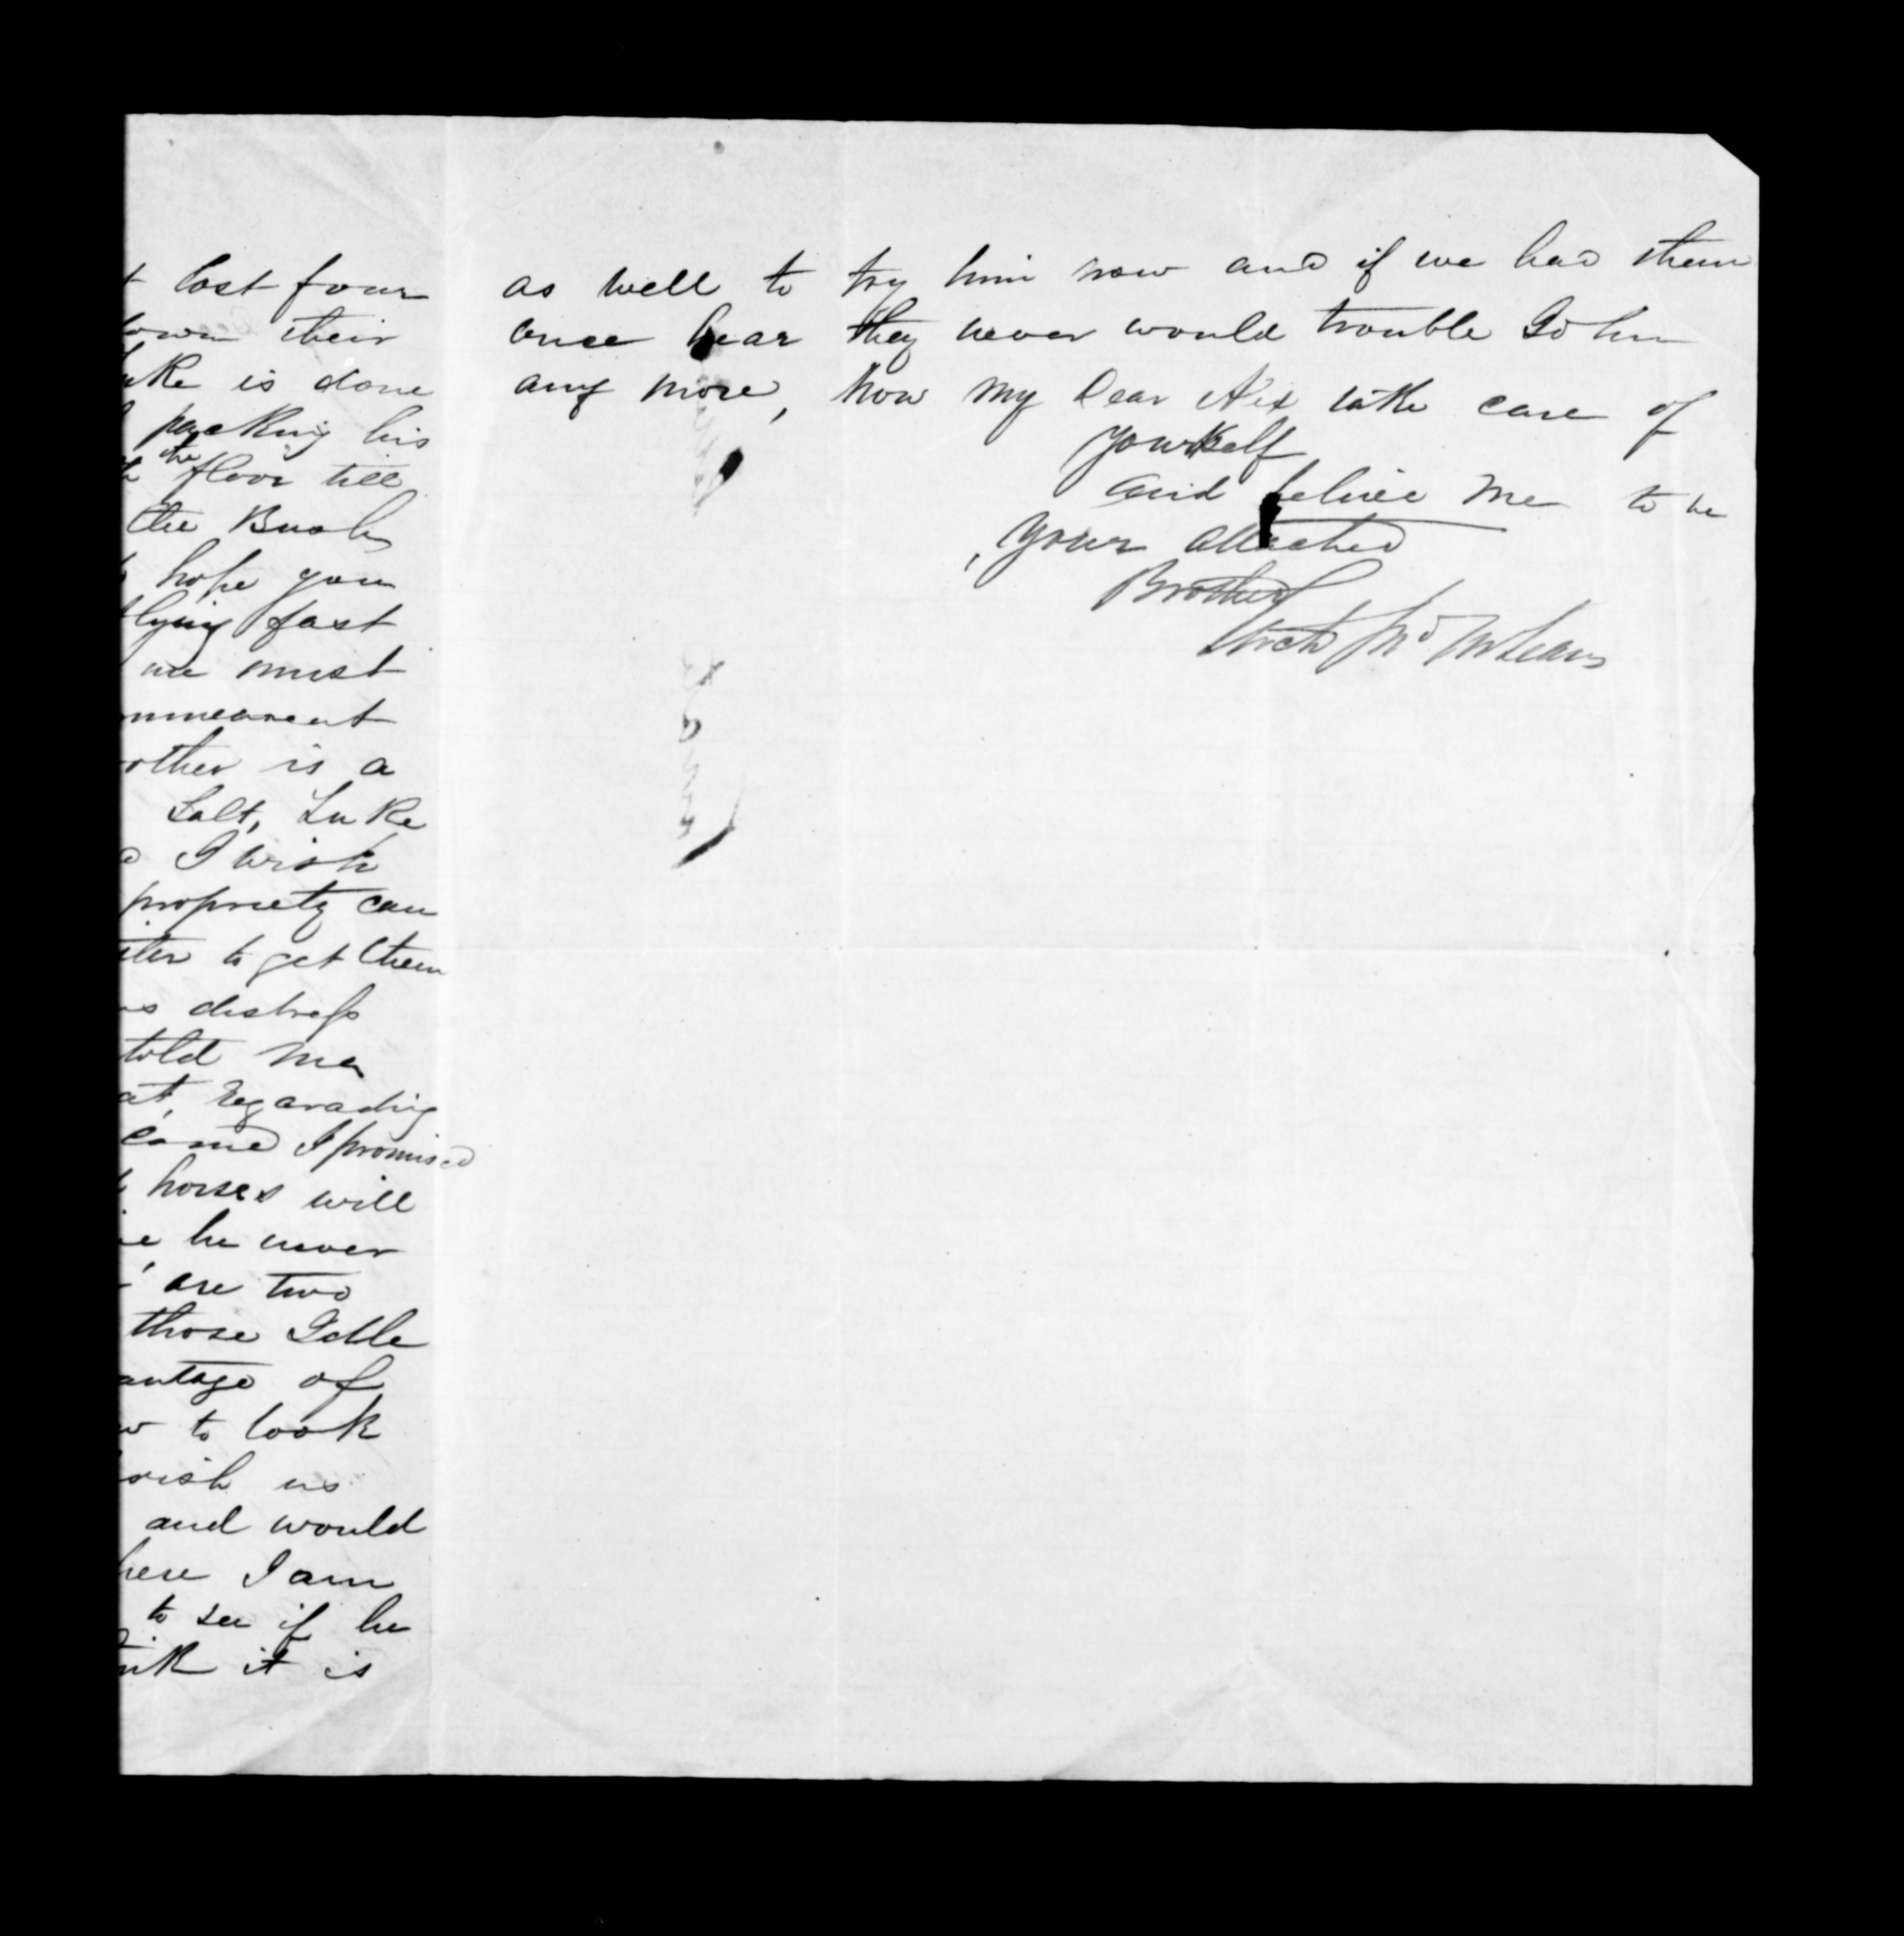 t lost four
own their
uke is done
packing his
the floor till
the Bush
hope you
flying fast
we must
other is a
Salt, Luke
I wish
propriety can
to get them
us distress
told me
at, Regarading
came I promised
horses will
he never
are two
those Idle
antage of
w to look
wish us
and would
here I am
to see if he
ink it is
as well to try him now and if we had them
once hear they never would trouble John
any more, now my Dear Alex take care of
yourself
and believe me to be
your attached
Brother
Arch Jno McLean